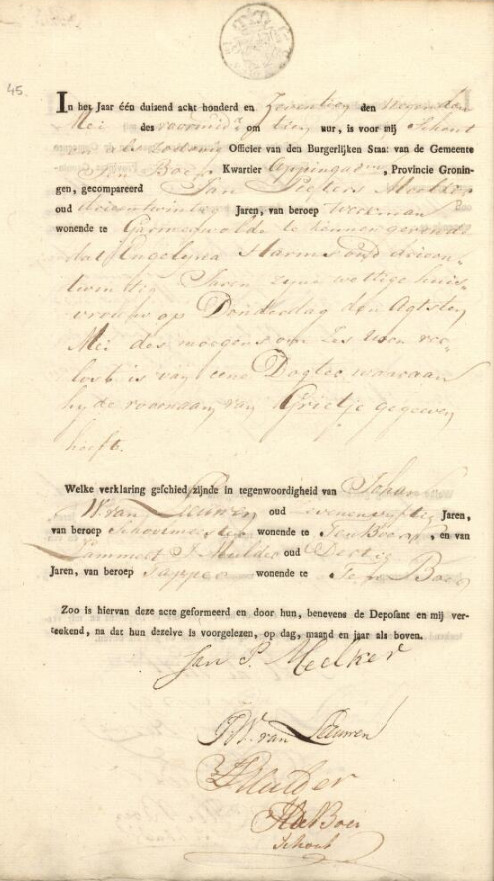 45.
In het Jaar één duizend acht honderd en Zeventien den
Mei des voormid.s om tien uur, is voor mij Schout
Officier van den Burgerlijken Staat van de Gemeente
Ten Boer, Kwartier Appingadam, Provincie Gronin-
gen, gecompareerd Jan Pieters Melker
oud drieentwintig Jaren, van beroep Werkman
wonende te Garmerwolde te kennen gevende
dat Engelijna Harms oud drieen-
twintig Jaren zijne wettige huis-
vrouw op Donderdag den Agtsten
Mei des morgens om Zes uren ver-
lost is van eene Dogter waaraan
hij de voornaam van Grietje gegeven
heeft.
Welke verklaring geschied zijnde in tegenwoordigheid van Johan
W. van Leeuwen oud Jaren,
van beroep Schoolmeester wonende te Ten Boer, en van
Lammert J Mulder oud Dertig
Jaren, van beroep Tapper wonende te Ten Boer
Zoo is hiervan deze acte geformeerd en door hun, benevens de Deposant en mij ver-
teekend, na dat hun dezelve is voorgelezen, op dag, maand en jaar als boven.
Jan P. Melker
J W. van Leeuwen
L J Mulder
Schout